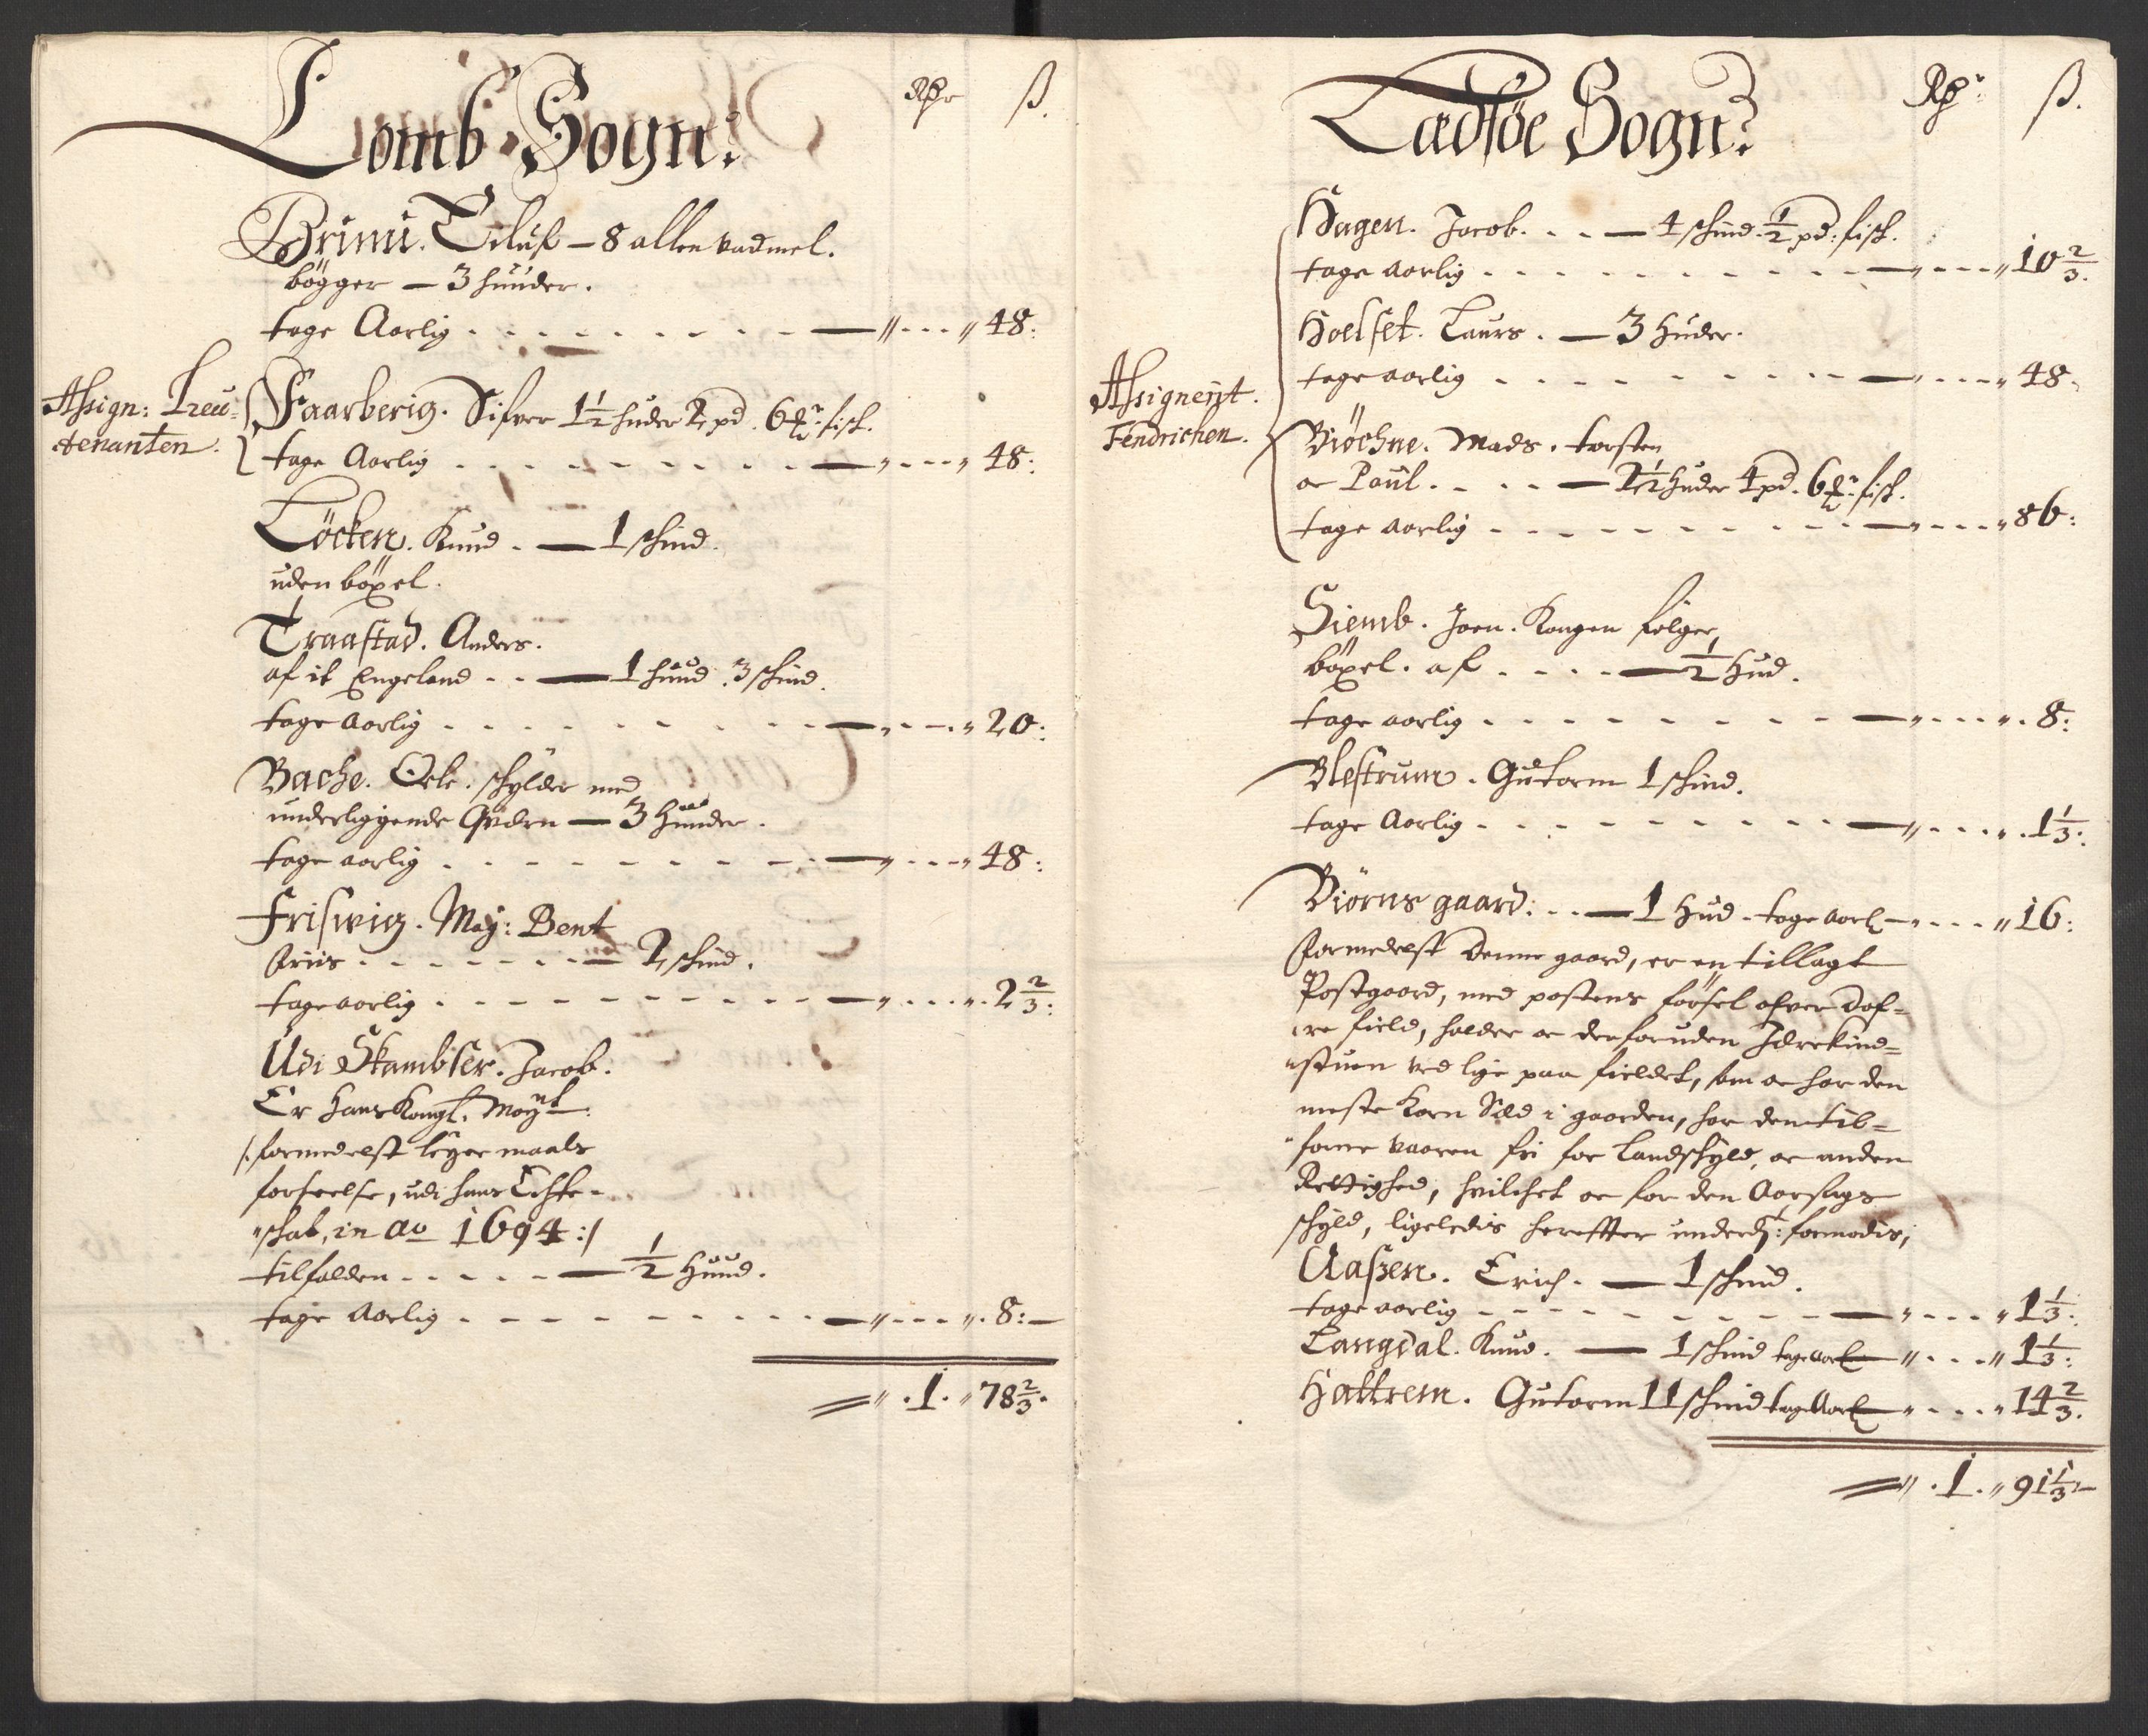 Lomb Sogn: Rdr ß.
Brimi. Eiluf — 8 allen vadmel.
bögger — 3 huuder.
tage Aarlig - - - — 〃 - - - 〃 48:
Assign: Leeu-
tenanten.
Faarberig. Sifver 1½ huder 2 pd. 6 ℔r: fisk.
tage Aarlig - - - — 〃 - - - 〃 48:
Löcken. Knud. — 1 skind.
uden böxel.
Traastad. Anders.
af it Engeland - - — 1 huud. 3 skind.
tage aarlig - - - — 〃 - - - 〃 20:
Bache. Ole. skylder med
underliggende Qværn — 3 Huuder.
tage aarlig - - - — 〃 - - - 〃 48:
Friswig. May: Bent
Friis - - - — 2 skind.
tage aarlig - - - — 〃 - - - 〃 2⅔:
Udi Skambser. Jacob.
Er Hans Kongl. Mayt
/: formedelst leyermaals
forseelse, udi hans Echte-
skab, in ao 1694 :/
tilfalden - - - — ½ Huud.
tage Aarlig - - - — 〃 - - - 〃 8: —
〃 . 1 . 〃 78⅔.
Lædsöe Sogn: Rdr ß.
Hagen. Jacob. - - — 4 skind. ½ pd: fisk.
tage aarlig - - - — 〃 - - - 〃 10⅔.
Hoelset. Laurs. — 3 Huder.
tage aarlig - - - — 〃 - - - 〃 48.
Assigneret.
Fendrichen.
Biöchne. Mads. torsten
oc Poul. - - - — 2½ Huder 4 pd. 6 ℔r: fisk.
tage aarlig - - - — 〃 - - - 〃 86:
Siemb. Joen. Kongen følger,
böxel. af - - - — ½ Hud.
tage aarlig - - - — 〃 - - - 〃 8:
Blestrum. Gutorm 1 skind.
tage Aarlig - - - — 〃 - - - 〃 1⅓:
Biörns gaard: - - — 1 Hud - tage aarl — 〃 - - - 〃 16:
formedelst denne gaard, er en tillagt
Postgaard, med postens førsel ofver Dof-
re field, holder oc der foruden Jerekind-
stuen ved lige paa fieldet, som oc har den
meste Korn Sæd i gaarden, har dem til-
forne vaaren fri for Landskyld, oc anden
Rettighed, hvilchet oc for den Aarsags
skyld, ligeledis herefter underd: formodis,
Aaszen. Erich. — 1 skind.
tage aarlig - - - — 〃 - - - 〃 1⅓:
Langdal. Knud. — 1 skind tage aarl — 〃 - - - 〃 1⅓:
Hattrem. Gutorm 11 skind tage Aarl — 〃 - - - 〃 14⅔.
〃 . 1 . 〃 91⅓ —